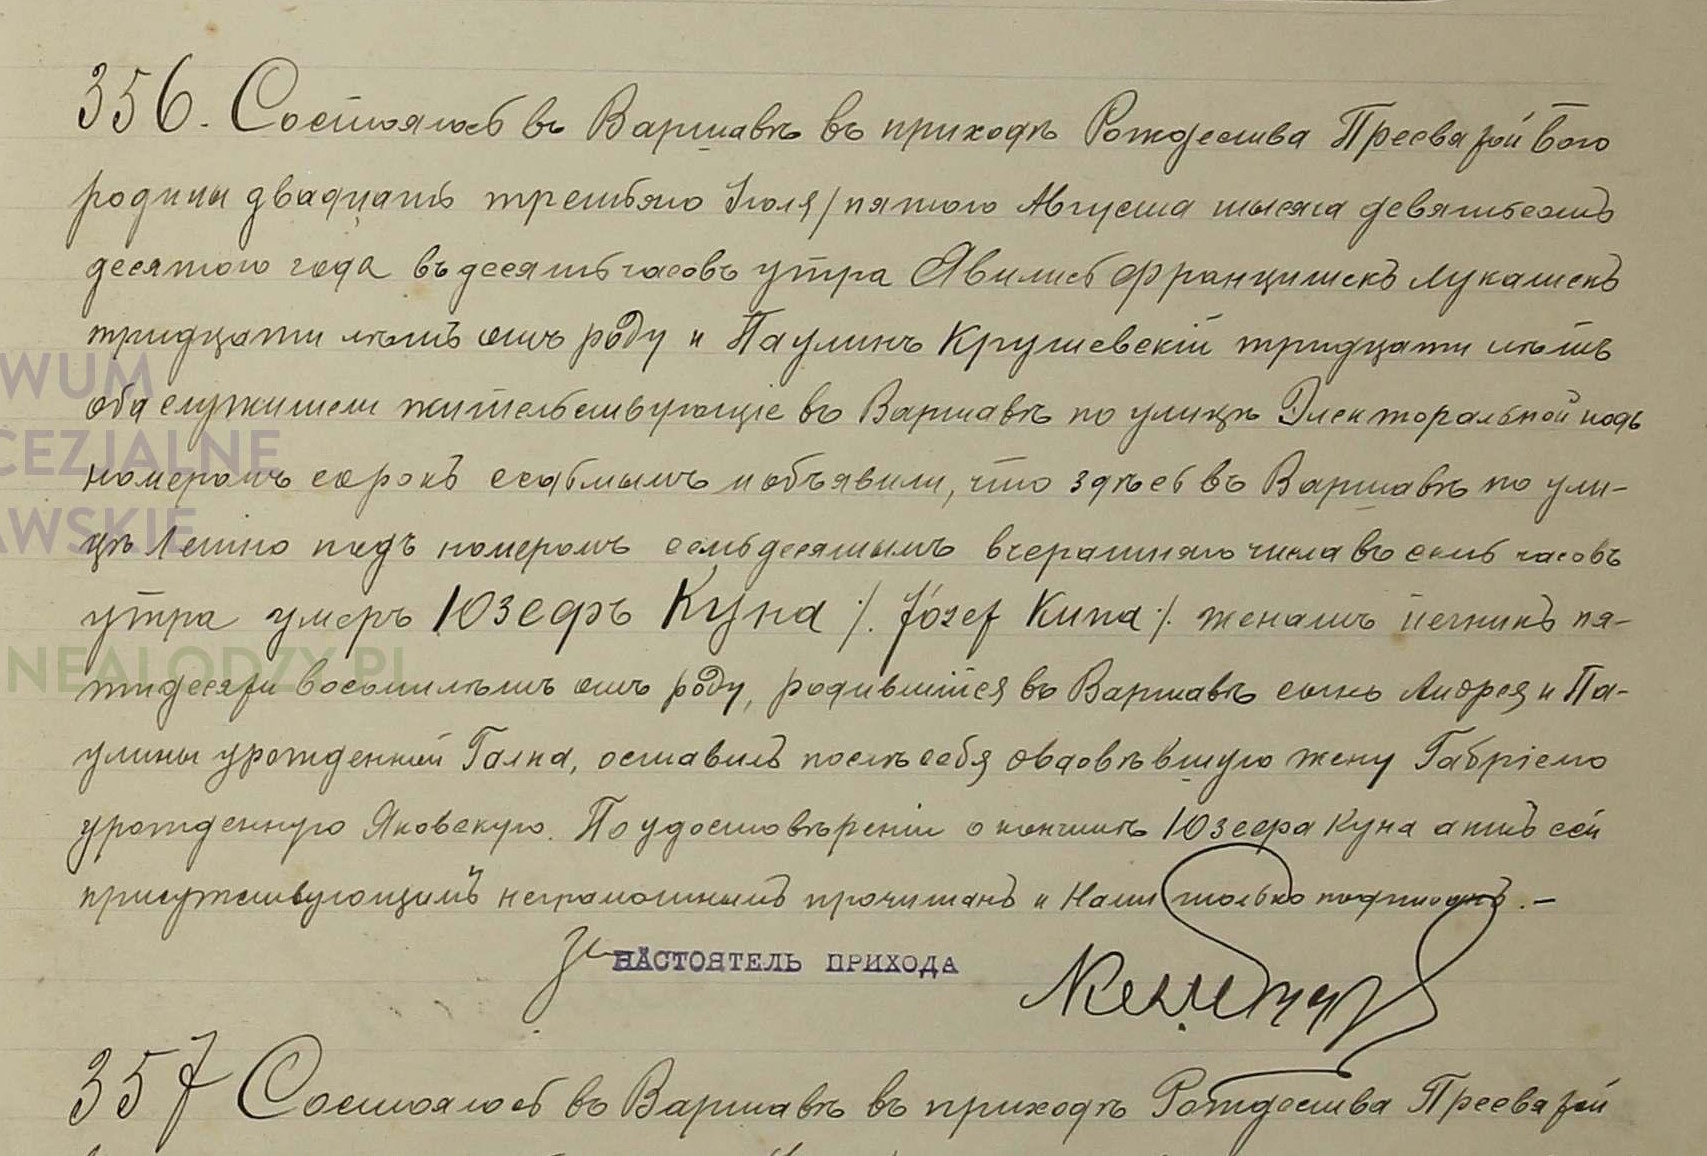 356. Состоялось въ Варшавѣ въ приходѣ Рождества Пресвятой Бого
родицы двадцать третьяго Іюля / пятого Августа тысяча девятьсотъ
десятого года въ десять часовъ утра Явились Францишекъ Лукашекъ
тридцати лѣтъ отъ роду и Паулинъ Крушевскій тридцати лѣтъ
оба служители жительствующіе въ Варшавѣ по улицѣ Электоральной подъ
номеромъ сорокъ седьмымъ и объявили, что здѣсь въ Варшавѣ по ули-
цѣ Лешно подъ номеромъ семьдесятымъ вчерашняго числа въ семь часовъ
утра умеръ Юзефъ Куна /. Józef Kuna /. женатъ печникъ пя-
тидесяти восьми лѣтъ отъ роду, родившійся въ Варшавѣ сынъ Андрея и Па-
улины урожденной Галка, оставилъ послѣ себя овдовѣвшую жену Габріелю
урожденную Яковскую. По удостовѣреніи о кончинѣ Юзефа Куна актъ сей
присутствующимъ неграмотнымъ прочитанъ и Нами только подписанъ. –
За НАСТОЯТЕЛЬ ПРИХОДА
357 Состоялось въ Варшавѣ въ приходѣ Рождества Пресвятой
WUM
CEZJALNE
AWSKIE
NEALODZY.PL